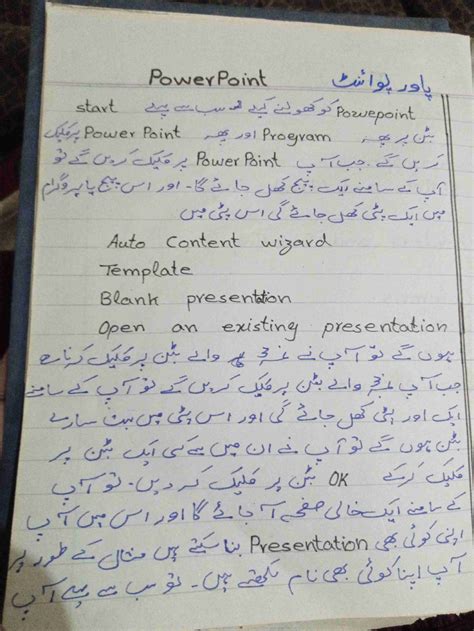 PowerPoint پاور پوائنٹ
Powepoint کو کھولنے کیلئے سب سے پہلے start
بٹن پر پھر Program اور پھر Power Point پر کلیک
کریں گے جب آپ PowerPoint پر کلیک کردیں گے تو
آپ کے سامنے ایک پیج کھل جائے گا۔ اور اس پیج یا پروگرام
میں ایک پٹی کھل جائے گی اس پٹی میں
Auto Content wizard
Template
Blank presentation
Open an existing presentation
ہوں گے تو آپ نے والے بٹن پر کلیک کرنا ہے
جب آپ والے بٹن پر کلیک کریں گے تو آپ کے سامنے
ایک اور پٹی کھل جائے گی اور اس پٹی میں بہت سارے
بٹن ہوں گے تو آپ نے ان میں سے کسی ایک بٹن پر
کلیک کرکے OK بٹن پر کلیک کر دیں۔ تو آپ
کے سامنے ایک خالی صفحہ آ جائے گا اور اس میں آپ
اپنی کوئی بھی Presentation بنا سکتے ہیں مثال کے طور پر
آپ اپنا کوئی بھی نام لکھتے ہیں۔ تو سب سے پہلے آپ